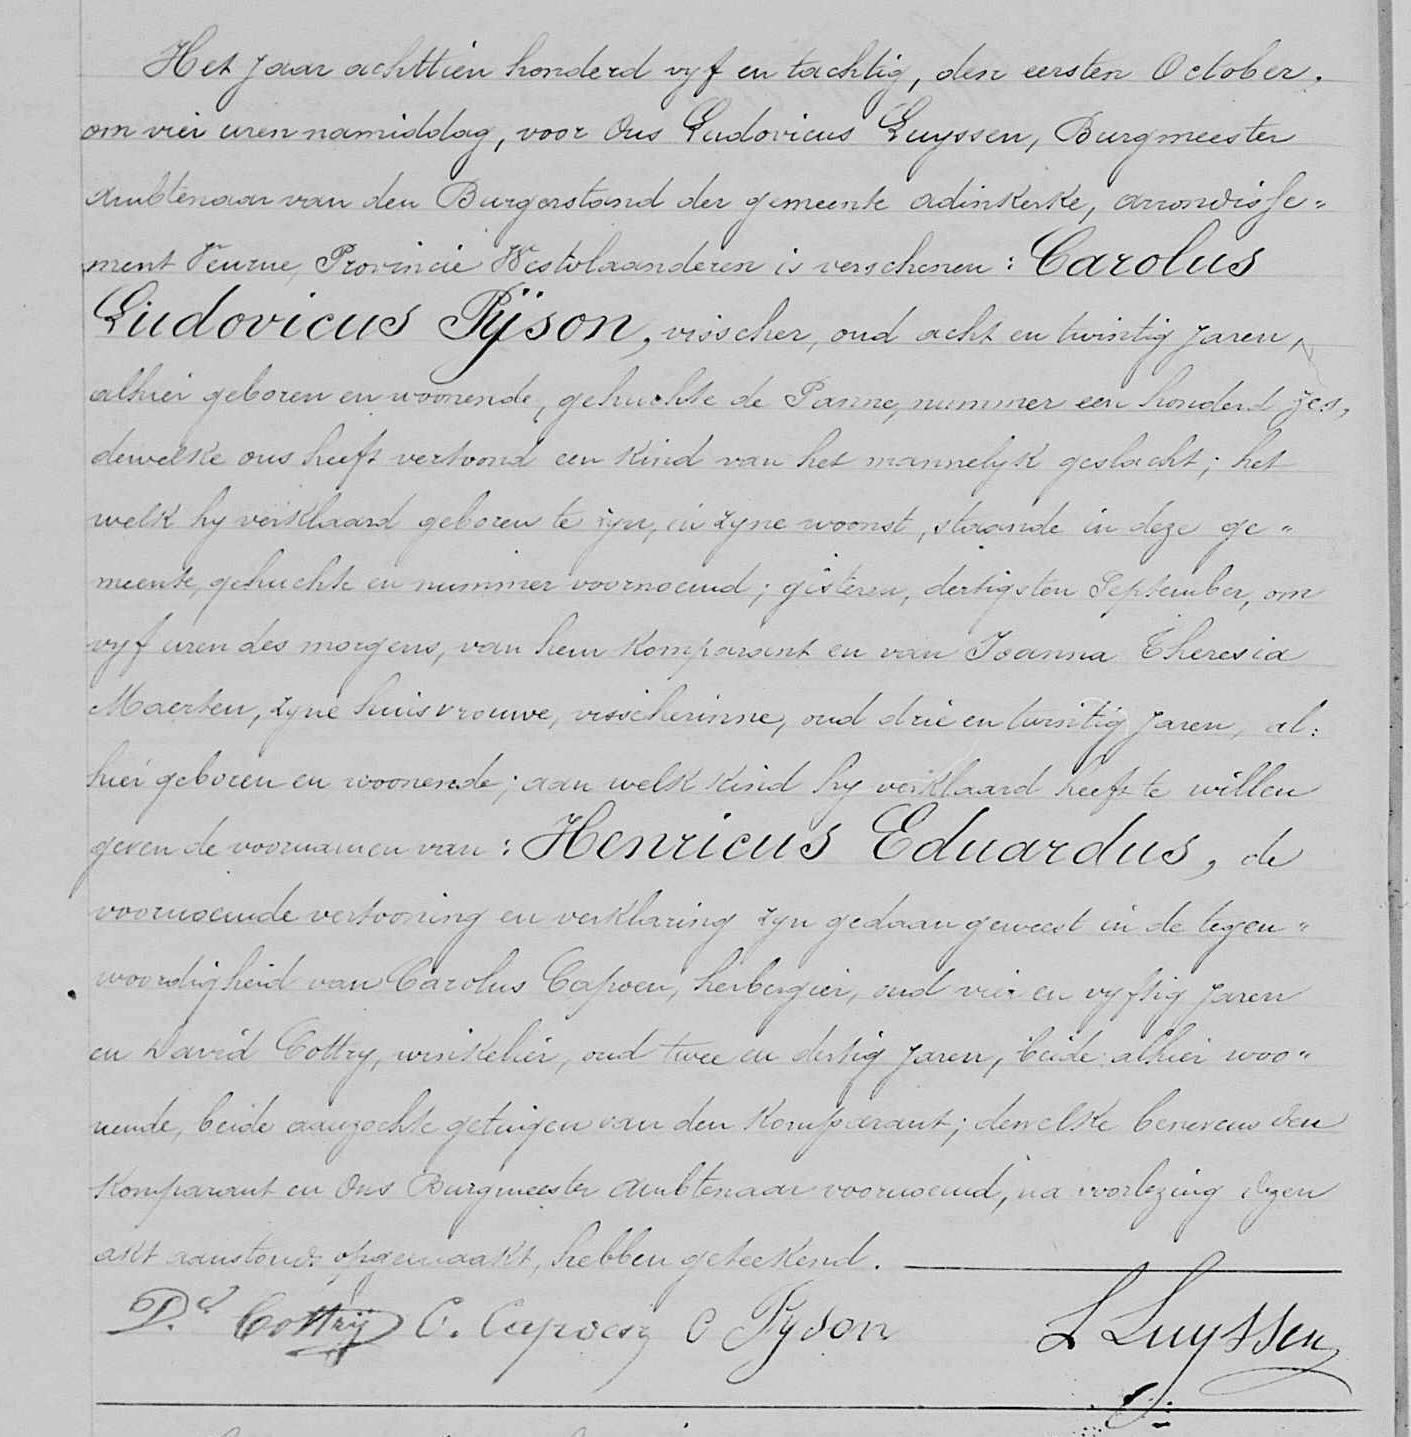 Het Jaar achttien honderd vyf en tachtig, den eersten October,
om vier uren namiddag, voor Ons Ludovicus Luyssen, Burgmeester
Ambtenaar van den Burgerstand der gemeente Adinkerke, arrondisse„
ment Veurne, Provincie Westvlaanderen is verschenen : Carolus
Ludovicus Pÿson, visscher, oud acht en twintig Jaren,
alhier geboren en woonende, gehuchte de Panne, nummer een honderd zes,
dewelke ons heeft vertoond een Kind van het mannelyk geslacht ; het
welk hy verklaard geboren te zyn, in zyne woonst, staande in deze ge„
meente, gehuchte en nummer voornoemd ; gisteren, dertigsten September, om
vyf uren des morgens, van hem Komparant en van Joanna Theresia
Maerten, zyne huisvrouwe, visscherinne, oud drie en twintig Jaren, al:
hier geboren en woonende ; aan welk Kind hy verklaard heeft te willen
geven de voornamen van : Henricus Eduardus, de
voornoemde vertooning en verklaring zyn gedaan geweest in de tegen„
woordigheid van Carolus Capoen, herbergier, oud vier en vyftig Jaren
en David Cottry, winkelier, oud twee en dertig Jaren, beide alhier woo„
nende, beide aanzochte getuigen van den Komparant ; dewelke benevens den
Komparant en Ons Burgmeester Ambtenaar voornoemd, na voorlezing dezen
akt aanstonds opgemaakt, hebben geteekend.
Dd Cottrÿ C. Capoen C Pyson L Luyssen